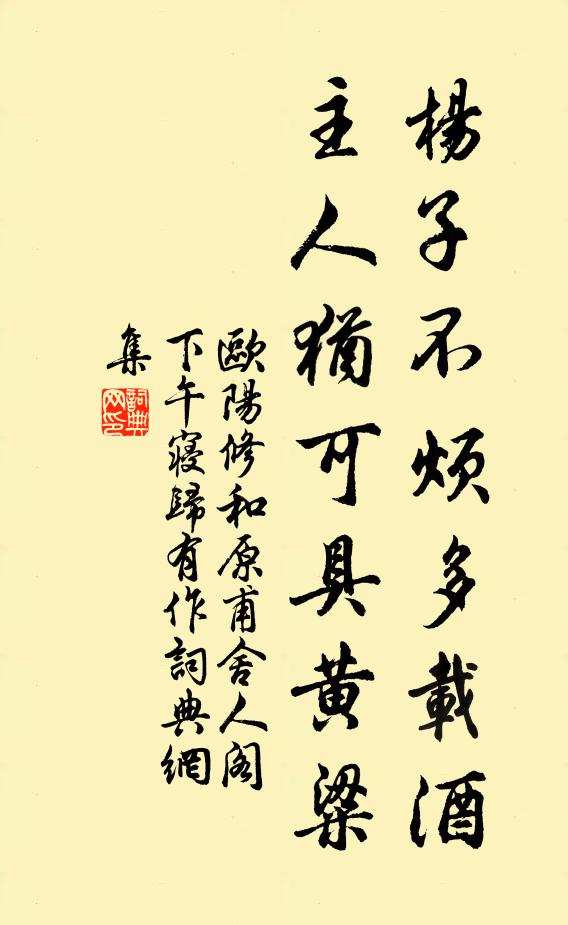 楊子不煩多載酒
主人猶可具黃粱
歐陽修和原甫舍人閣
下午寝歸有作詞典網
集
詞典
网印